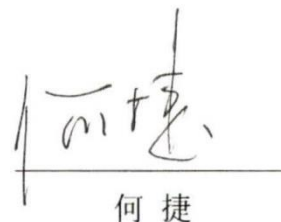 何捷
何 捷